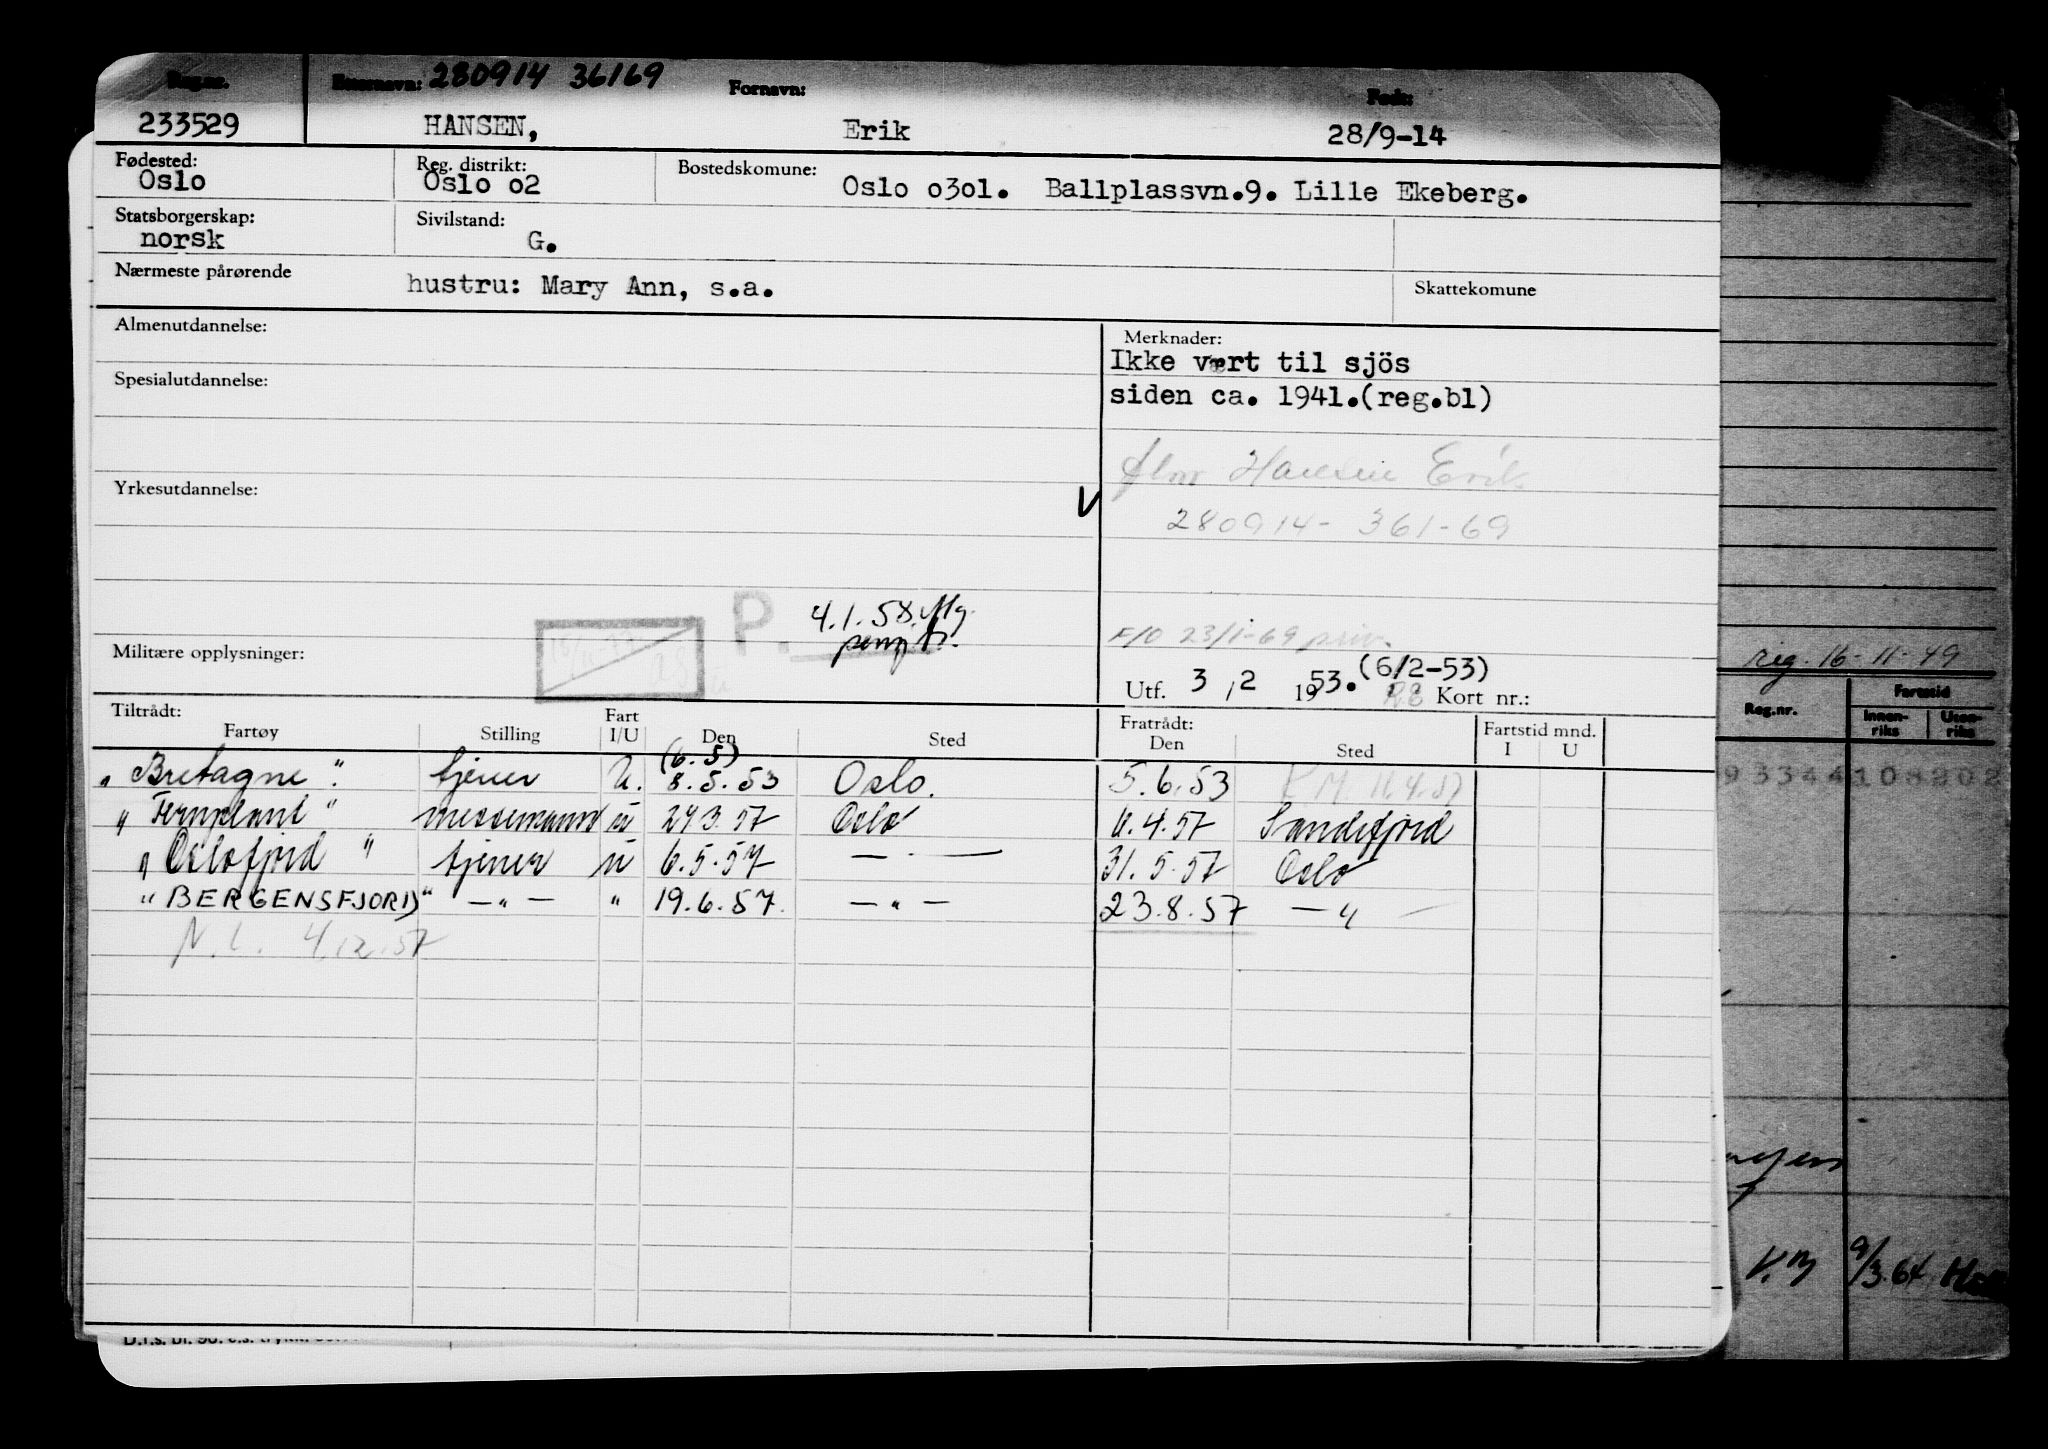 Reg.nr. Etternavn: 280914 36169 Fornavn: Født:
233529 HANSEN, Erik 28/9-14
Fødested: Reg. distrikt: Bostedskomune:
Oslo Oslo o2 Oslo o3o1. Ballplassvn.9. Lille Ekeberg.
Statsborgerskap: Sivilstand:
norsk G.
Nærmeste pårørende hustru: Mary Ann, s.a. Skattekomune
Almenutdannelse: Merknader:
Ikke vært til sjös
Spesialutdannelse: siden ca. 1941.(reg.bl)
Hansen Erik
Yrkesutdannelse: V
280914- 361-69
P. 4.1.58.
F/O 23/1-69 priv.
Militære opplysninger:
Utf. 3 / 2 1953. (6/2-53) Kort nr.:
Tiltrådt: Fart Fratrådt: Fartstid mnd.
Fartøy Stilling I/U Den Sted Den Sted I U
(6.5)
"Bretagne". tjener U. 8.5.53 Oslo. 5.6.53 K.M. 11.4.57
"Fernplant" messemann u 293.57 Oslo 11.4.57 Sandefjord
"Oslofjord" tjener u 6.5.57 — . — 31.5.57 Oslo
"BERGENSFJORD" —"— " 19.6.57. —"— 23.8.57 —"—
N.L. 4.12.57
reg. 16-11-49
Reg.nr. Fartstid
Innen-riks Uten-riks
93344108202
K.M 9/3.64